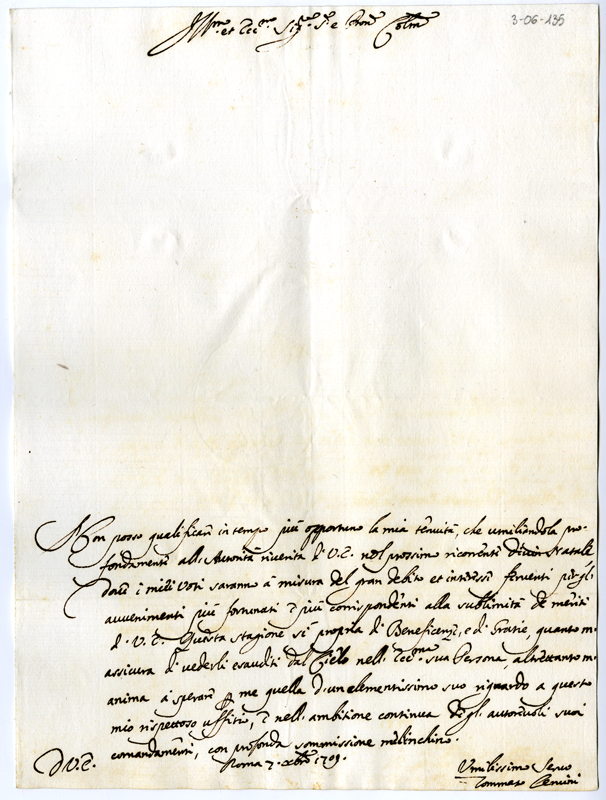 3-06-135
Ill.mo et Ecc.mo Sig.re S.r e Pron Colmo
Non posso qualificare in tempo più opportuno la mia tenuità, che umiliandola pro-
fondamente all' Autorità riverita di V.E. nel prossimo ricorrente Natale
dove i miei Voti saranno à misura del gran debito et interessi ferventi per gli
avvenimenti più fortunati e più corrispondenti alla sublimità de meriti
di V.E. Questa stagione sì propria di Beneficenze, e di Grazie, quanto m'
assicura di vederli esauditi dal Cielo nell' Ecc.ma sua Persona altrettanto m'
anima à sperare p me quella d'un clementissimo suo riguardo a questo
mio rispettoso uffitio, e nell' ambitione continua degl' autorevoli suoi
comandamenti, con profonda sommissione m'inchino.
Di V.E. Roma 7. xbre 1709.
Umilissimo Servo
Tommaso Cervini